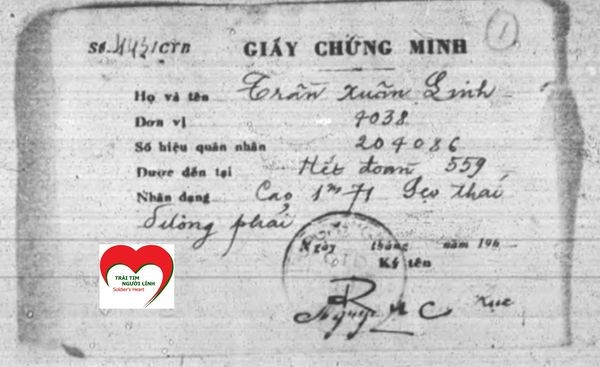 Số 443/CTB
GIẤY CHỨNG MINH
1
Họ và tên Trần Xuân Linh
Đơn vị 4038
Số hiệu quân nhân 204086
Được đến tại Hết đoàn 559
Nhân dạng Cao 1m71 Sẹo thái
dương phải
Ngày tháng năm 196
Ký tên
TRÁI TIM
NGƯỜI LÍNH
Soldier's Heart